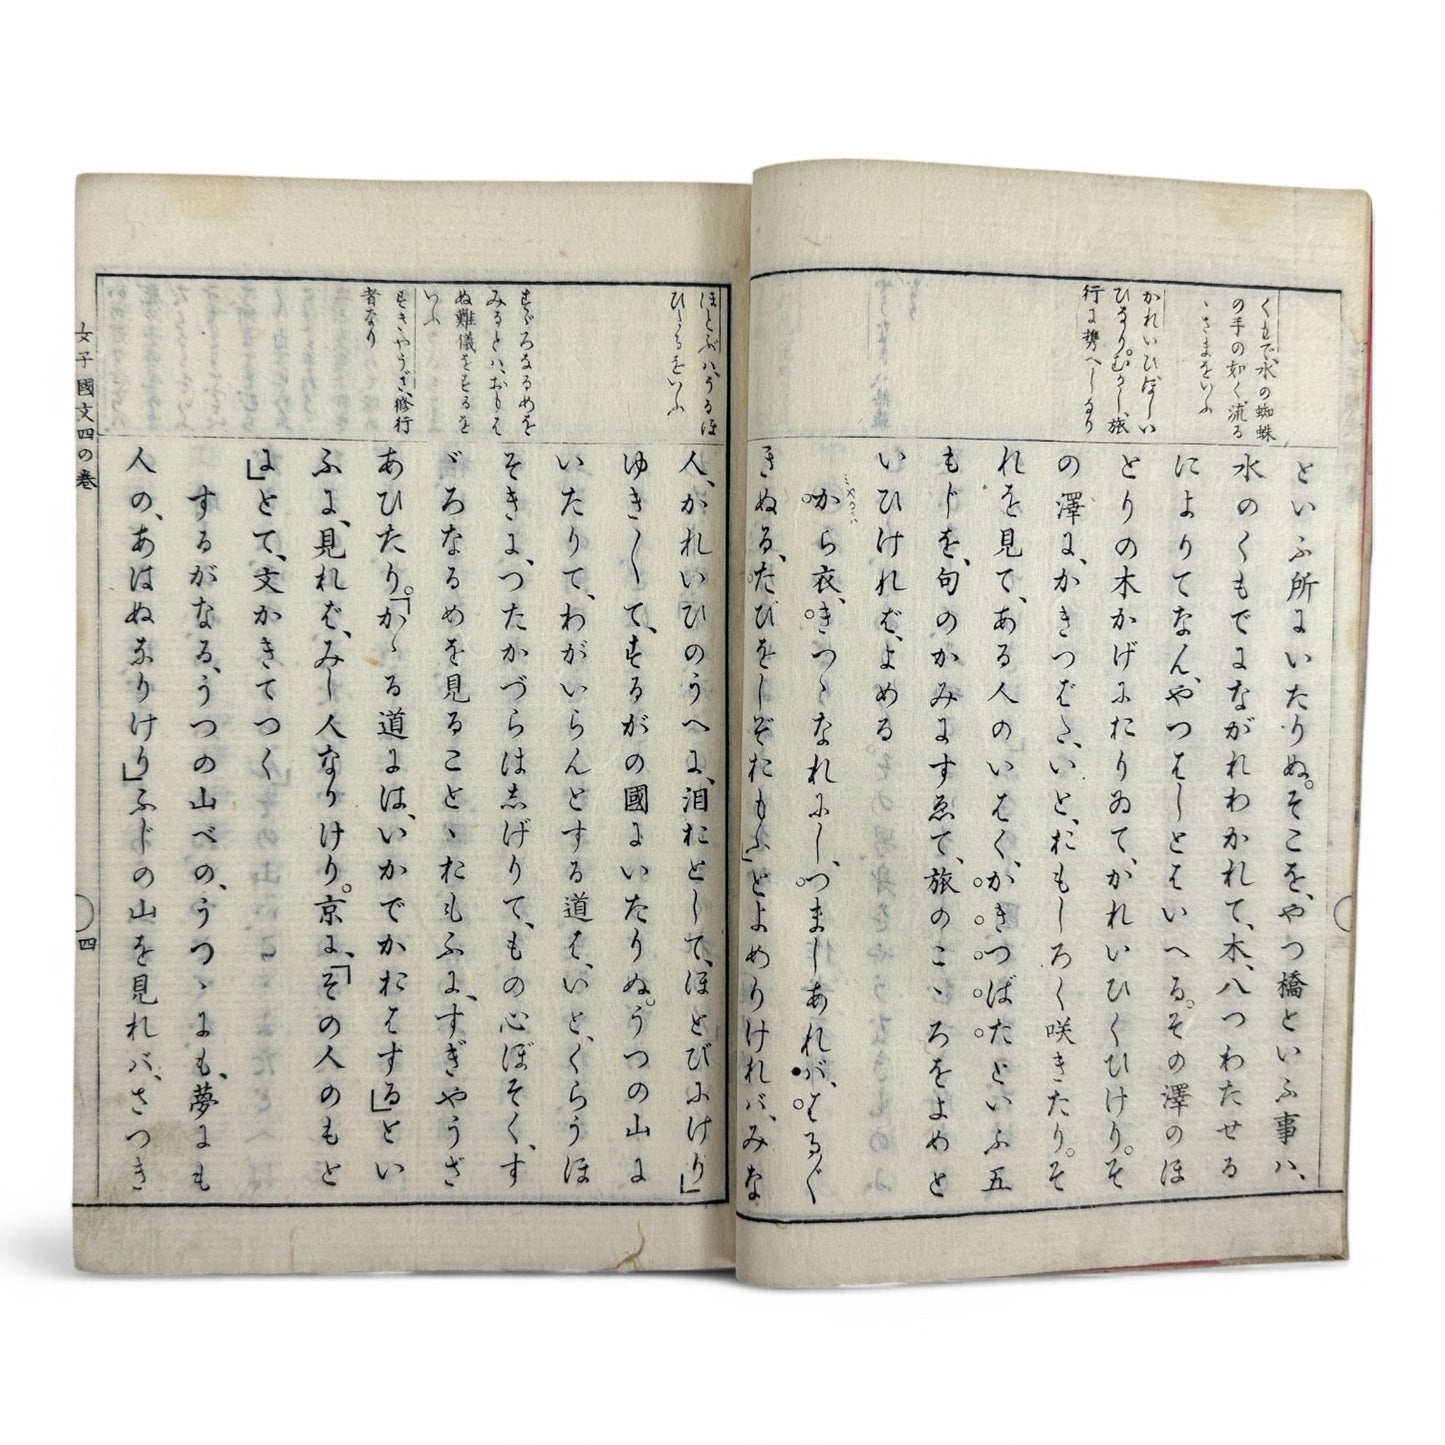 くもで、水の蜘蛛
の手の如く流るゝさまをいふ
かれいひほしい
ひなり。むかし旅
行に携へしなり
といふ所にいたりぬ。そこを、やつ橋といふ事ハ、
水のくもでにながれわかれて、木、八つわたせる
によりてなん、やつはしとはいへる。その澤のほ
とりの木かげにたりゐて、かれいひくひけり。そ
の澤に、かきつばた、いと、おもしろく咲きたり。そ
れを見て、ある人のいはく、かきつばたといふ五
もじを、句のかみにすゑて、旅のこゝろをよめと
いひければ、よめる
から衣、きつゝなれにし、つましあれバ、はるゞ
きぬる、たびをしぞおもふ」とよめりけれバ、みな
ほとぶハ、うるほ
ひたるをいふ
すゞろなるめを
みるとハ、おもは
ぬ難儀をするを
いふ
すぎやうざ、修行
者なり
人、かれいひのうへに、泪おとして、ほとびにけり」
ゆき〳〵て、するがの國にいたりぬ。うつの山に
いたりて、わがいらんとする道は、いと、くらうほ
そきに、つたかづらはしげりて、もの心ぼそく、す
ゞろなるめを見ることゝおもふに、すぎやうざ
あひたり。「かゝる道には、いかでかおはする」とい
ふに、見れば、みし人なりけり。京に、「その人のもと
に」とて、文かきてつく
するがなる、うつの山べの、うつゝにも、夢にも
人の、あはぬなりけり」ふじの山を見れバ、さつき
女子國文四の巻
四